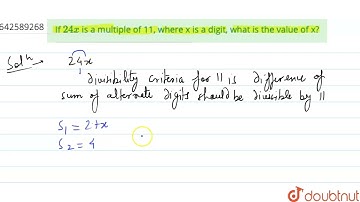 642589268
If 24x is a multiple of 11, where x is a digit, what is the value of x?
Solⁿ
24x
divisibility criteria for 11 is difference of
sum of alternate digits should be divisible by 11
S₁ = 2+x
S₂ = 4
doubtnut